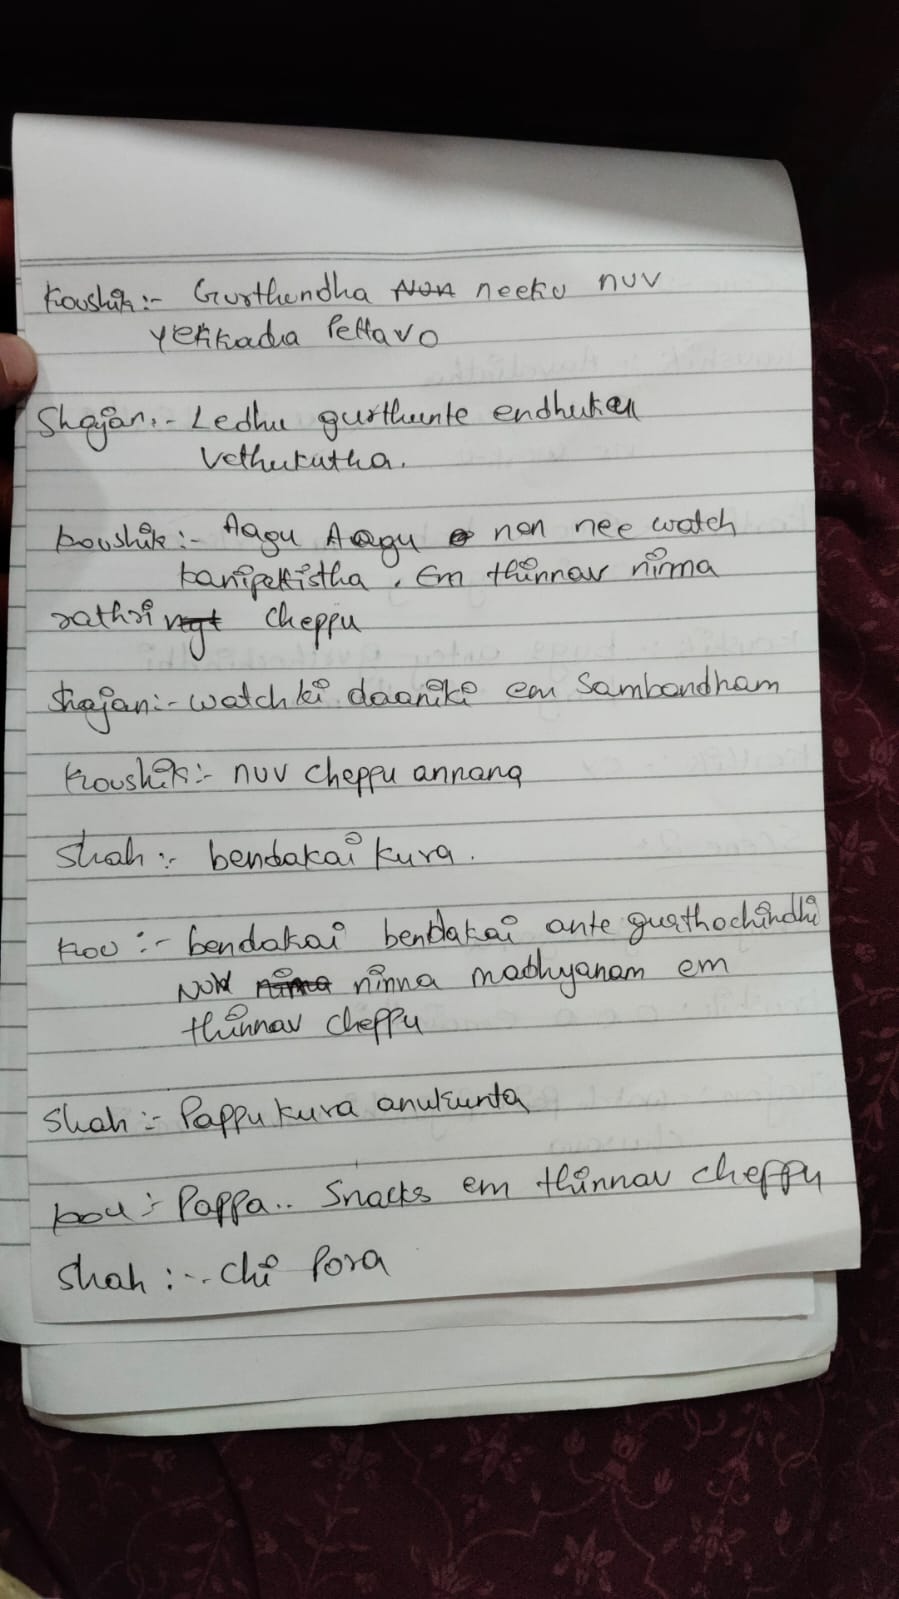 Koushik:- Gurthundha neeku nuv
yekkada Pettavo
Shajan:- Ledhu gurthunte endhuku
Vethukutha.
Koushik:- Aagu Aagu nen nee watch
kanipettistha. Em thinnav ninna
rathri cheppu
Shajan:- watch ki daaniki em Sambandham
Koushik:- nuv cheppu annang
Shah:- bendakai kura.
Kou:- bendakai bendakai ante gurthochindhi
Nuv ninna madhyanam em
thinnav cheppu
Shah:- Pappu kura anukunta
Kou:- Pappa.. Snacks em thinnav cheppu
Shah:-. chi Pora